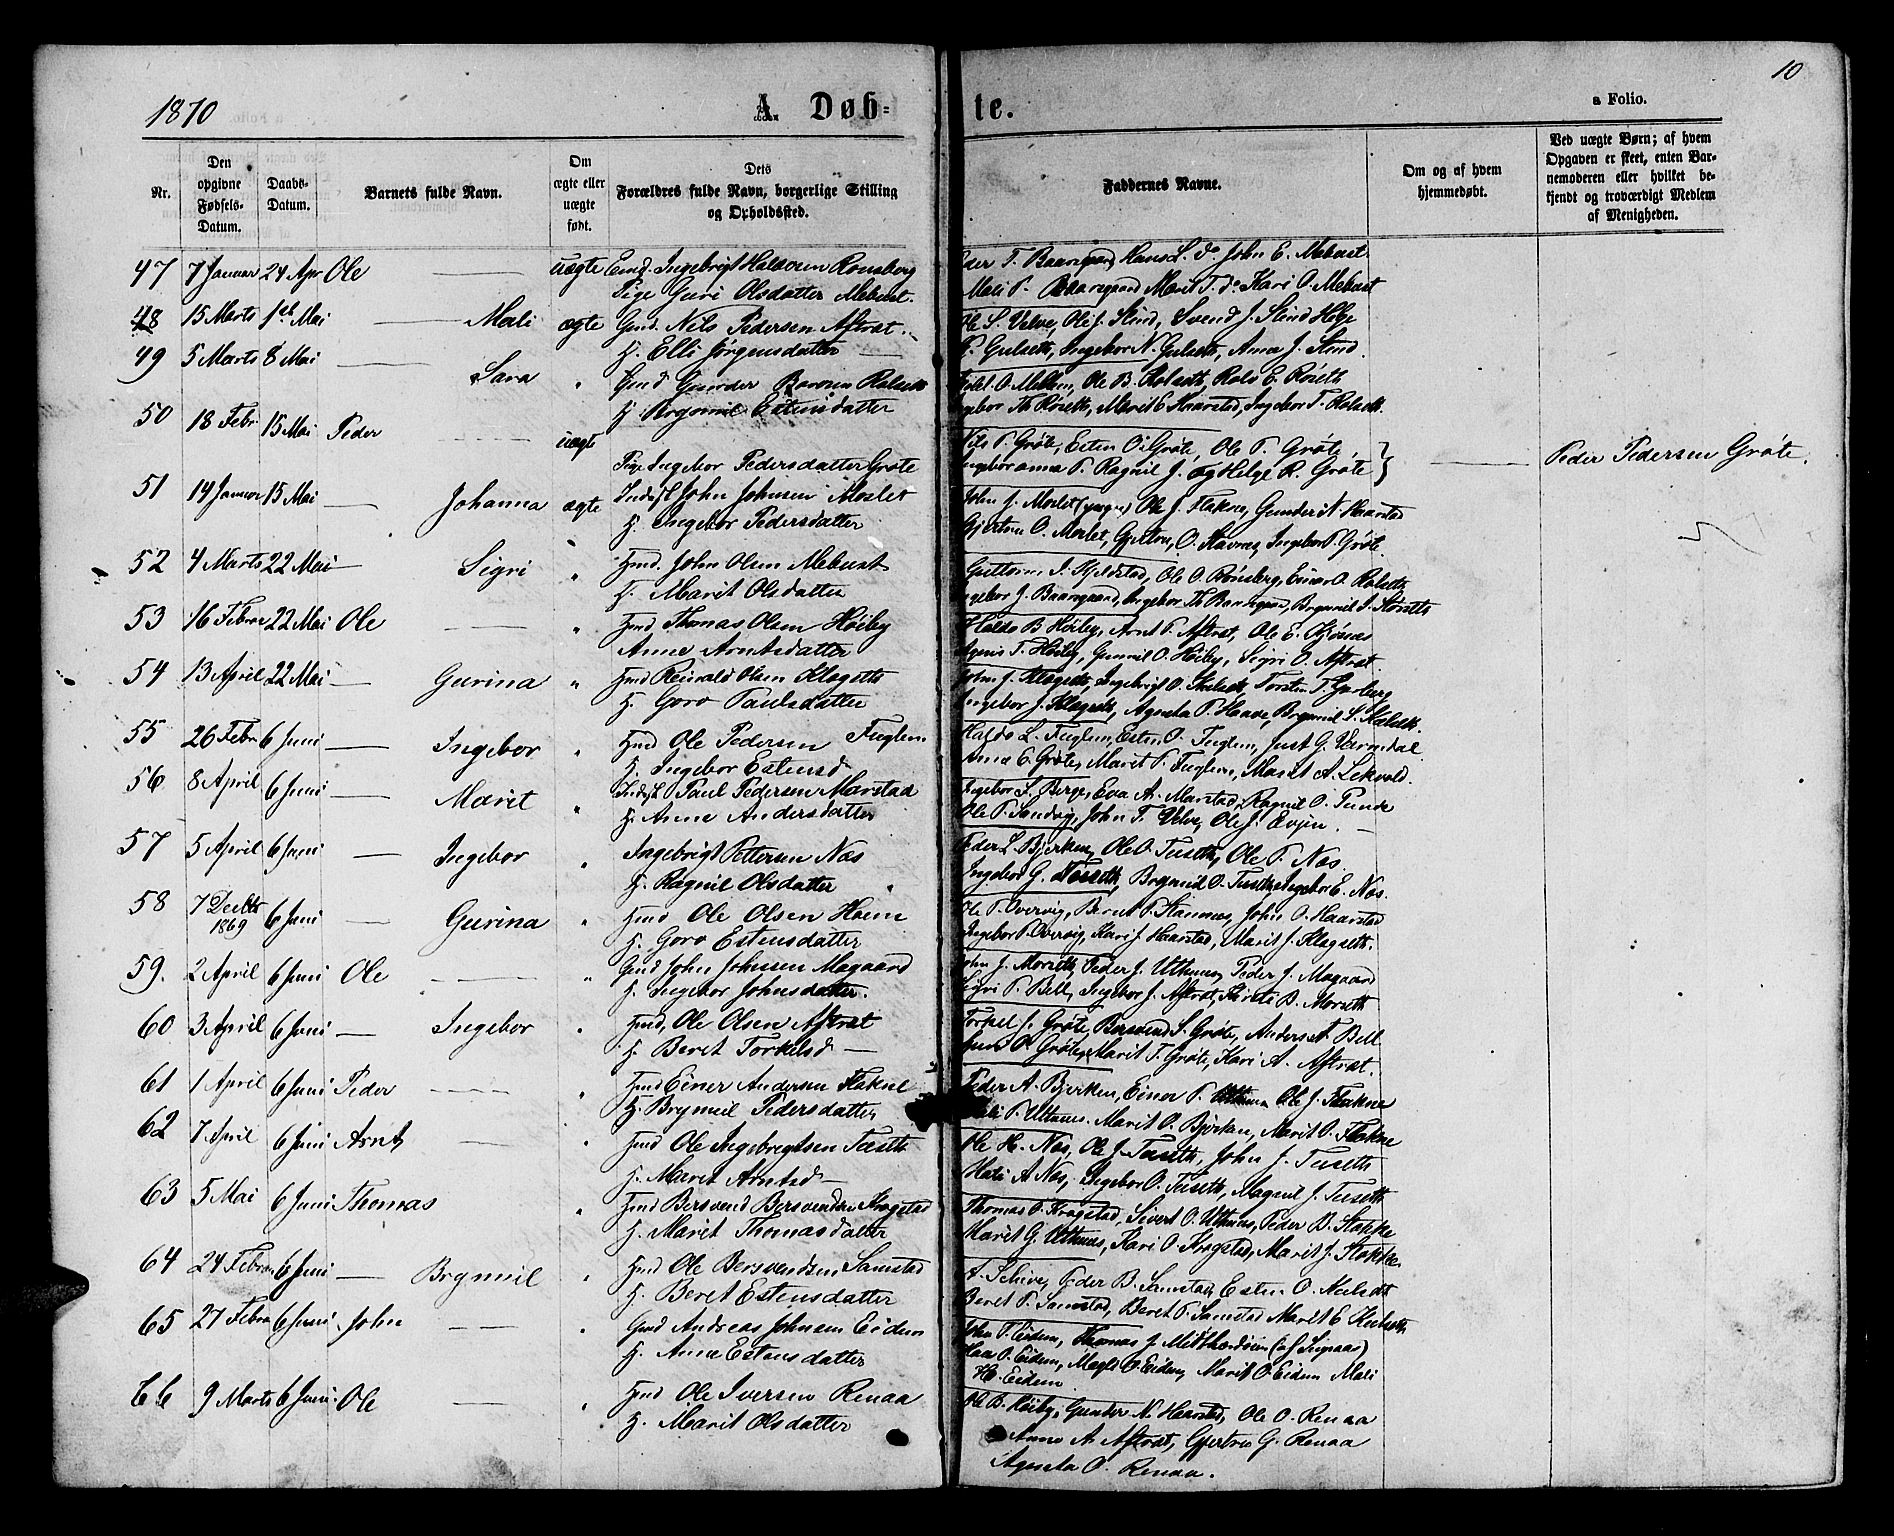 1870
A. Døb=
te.
a Folio.
10
Nr.
Den opgivne Fødsels-Datum.
Daabs-Datum.
Barnets fulde Navn.
Om ægte eller uægte født.
Dets Forældres fulde Navn, borgerlige Stilling og Opholdssted.
Faddernes Navne.
Om og af hvem hjemmedøbt.
Ved uægte Børn; af hvem Opgaven er skeet, enten Barnemoderen eller hvilket bekjendt og troværdigt Medlem af Menigheden.
47 7 Januar 24 Apr Ole — uægte Ingebrigt Haldorsen Ronsberg
Pige Guri Olsdatter Mebust.
T. Baargaard, Hans L. do John E. Mebust
Mali P. Baargaard Marit T. do Kari O. Mebust
48 15 Marts 1ste Mai — Mali ægte Gmd. Nils Pedersen Aftret.
H. Elli Jørgensdatter —
Ole S. Velve, Ole J. Stind, Svend J. Stind
P. Gulseth, Ingebor N. Gulseth, Anne J. Stind.
49 5 Marts 8 Mai — Sara " Gmd Gunder
H. Brynnil Estensdatter
O. Mellem, Ole B. Rolseth, Rolv E. Röseth
Th. Röseth, Marit E. Haarstad, Ingebor T. Rolseth.
50 18 Febr. 15 Mai Peder — uægte
Pige Ingebor Pedersdatter Gröte
Nils P. Gröte, Esten O. Gröte, Ole P. Gröte,
Ingeboranna P. Ragnil J. og Helge R. Gröte
— Peder Pedersen Gröte.
51 14 Januar 15 Mai — Johanna ægte Inds. John Johnsen Moslet
H. Ingebor Pedersdatter
John J. Moslet (yngre) Ole J. Flakne, Gunder N. Haarstad
Gjertru O. Moslet, Gjertru O. Stavnes, Ingebor P. Gröte.
52 4 Marts 22 Mai — Sigri " Gmd. John Olsen Mebust
H. Marit Olsdatter
Guttorm J. Kjelstad, Ole O. Rönsberg, Einar O. Rolseth
Ingebor J. Baargaard, Ingebor Th. Baargaard, Brynnil J.
53 16 Februar 22 Mai Ole — " Gmd Thomas Olsen Höiby
Anne Arntsdatter
Haldo B. Höiby, Arnt P. Aftret, Ole E. Kjösnæs
Agnis T. Höiby, Gunnil O. Höiby, Sigri O. Aftret.
54 13 April 22 Mai — Gurina " Gmd Reinald Olsen Klegseth
H. Goro Paulsdatter
John J. Klegseth, Ingebrigt O. Torsten T. Garberg
Ingebor J. Klegseth, Agneta P. Haave, Brynnil S.
55 26 Febr 6 Juni — Ingebor " Gmd Ole Pedersen Fuglem
H. Ingebor Estensd
Haldo L. Fuglem, Esten O. Fuglem, Just G. Værndal
Anne E. Gröte, Marit P. Fuglem, Marit A. Lekvold.
56 8 April 6 Juni — Marit " Inds. Paul Pedersen Marstad
H. Anne Andersdatter
Ingebor S. Berge, Eva A. Marstad, Ragnil O. Tunde
Ole P. Sandvig, John T. Velve, Ole J. Evjen. —
57 5 April 6 Juni — Ingebor " Ingebrigt Pettersen Næs
H. Ragnil Olsdatter "
Peder L. Bjerken, Ole O. Tuseth, Ole P. Næs.
Ingebor G. Tuseth, Brynnil O. Tuseth, Ingebor E. Næs.
58 7 Decbr 1869 6 Juni — Gurina " Gmd Ole Olsen Hoem
H. Goro Estensdatter
Ole P. Overvig, Bernt P. Stamnes, John O. Haarstad
Ingebor P. Overvig, Kari J. Haarstad, Marit J. Klegseth.
59. 2 April 6 Juni Ole — " Gmd John Johnsen Mogaard
H. Ingebor Johnsdatter.
John J. Morseth, Peder J. Uthuus, Peder J. Mogaard
Sigri P. Bell, Ingebor J. Aftret, Kirsti B. Morseth
60 3 April 6 Juni — Ingebor " Gmd, Ole Olsen Aftret
H. Beret Torkelsd —
Torkel J. Gröte, Bersvend S. Gröte, Anders A. Bell
O. Gröte, Marit T. Gröte, Kari A. Aftret.
61 1 April 6 Juni Peder — " Gmd Einer Andersen Flakne
H. Brynnil Pedersdatter
Peder A. Bjerken, Einer P. Uthuus Ole J. Flakne
P. Uthuus. Marit O. Björken, Marit O. Flakne
62 7 April 6 Juni Arnt — " Gmd Ole Ingebrigtsen Tuseth
H. Maret Arntsd —
Ole H. Næs, Ole J. Tuseth, John J. Tuseth
Mali A. Næs, Ingebor O. Tuseth, Magnil J. Tuseth
63 5 Mai 6 Juni Thomas " Gmd Bersvend Bersvendsen Kragstad
H. Marit Thomasdatter
Thomas O. Kragstad, Sivert O. Uthuus, Peder B. Stokke
Marit G. Uthuus, Kari O. Kragstad, Marit J. Stokke.
64 24 Februar 6 Juni — Brynnil " Gmd Ole Bersvendsen Samstad
H. Beret Estensdatter
A. Schive, Peder B. Samstad, Esten O.
Beret P. Samstad, Beret P. Samstad Marit E.
65 27 Febr 6 Juni John — " Gmd Andreas Johnsen Eidem
H. Anne Estensdatter
John P. Eidem, Thomas J. (af Singsaas)
O. Eidem, Magli O. Eidem, Marit O. Eidem Mali
H. Eidem
66 9 Marts 6 Juni Ole — " Gmd Ole Iversen Renaa
H. Marit Olsdatter
Ole B. Höiby, Gunder N. Haarstad, Ole O. Renaa
Anne A. Aftret, Gjertru G. Renaa
Agneta O. Renaa.